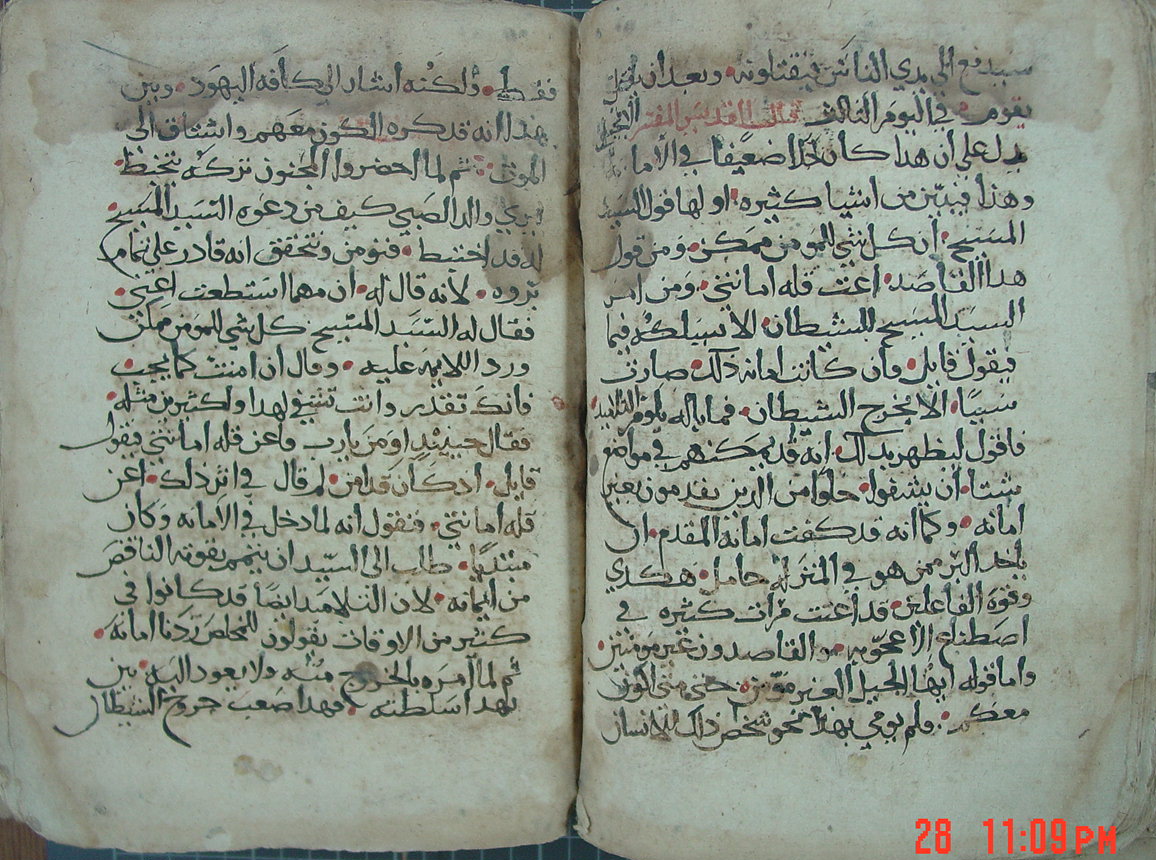 سيدفع الى يدي الناس فيقتلونه وبعد ان يقتل
يقوم في اليوم الثالث قال القديس المفسر الانجيل
يدل على ان هذا كان جلا ضعيفا في الامانه
وهذا فيبين من اشيا كثيره اولها قول السيد
المسيح ان كل شي للمومن ممكن ومن قول
هذا القاصد اعن قله امانتي ومن امر
السيد المسيح للشيطان الا يسلكه فيما
فيقول قايل وان كانت امانه ذلك صارت
سببا الا يخرج الشيطان فما باله يلوم التلاميد
فاقول ليظهر بدلك انه قد يمكنهم في مواضع
شتا ان يشفوا خلوا من الدين يقدمون بغير
امانه وكما انه قد كفت امانه المقدم ان
ياخد البر ممن هو في المنزله حامل هكدي
وقوة الفاعلين قد اعنت مرات كثيره في
اصطناع الاعجوبه والقاصدون غير مومنين
واما قوله ايها الجيل الغير مومن حتى متى اكون
معكم فلم يومي بهذا نحو شخص ذلك الانسان
فقط ولكنه اشار الى كافه اليهود وبين
بهدا انه قد كره الكون معهم واشتاق الى
الموت ثم لما احضروا المجنون تركه يتخبط
ليري والد الصبي كيف من دعوه السيد المسيح
له قد اختبط فنومن ونتحقق انه قادر على تمام
بروه لانه قال له ان مهما استطعت اعني
فقال له السيد المسيح كل شي للمومن ممكن
ورد اللايمه عليه وقال ان امنت كما يجب
فانك تقدر وانت تشفي لهدا ولكثير من مثله
فقال حينيد اومن يارب فاعن قله امانتي فيقول
قايل اد كان قد امن لم قال في اثر دلك اعن
قله امانتي فنقول انه لما دخل في الامانه وكان
مبتديا طلب الى السيد ان يتمم بقوته الناقص
من ايمانه لان التلاميد ايضا قد كانوا في
كثير من الاوقات يقولون للمخلص زدنا امانه
ثم لما امره بالخروج منه ولا يعود اليه بين
بهدا سلطنته فهدا صعب خروج الشيطان